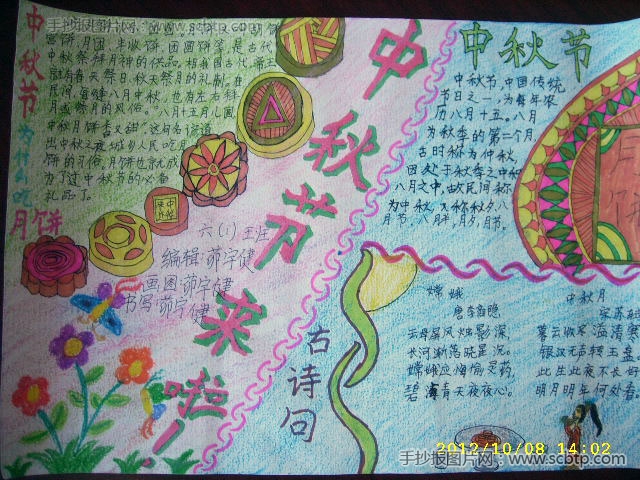 中秋节为什么吃月饼
宫饼、月团、丰收饼、团圆饼等,是古代
中秋祭拜月神的供品。
有春天祭日,秋天祭月的礼制。在
民间,每逢八月中秋,也有左右
月或祭月的风俗。“八月十五月儿圆,
中秋月饼香又甜”,这句名谚道
出中秋之夜城乡人民吃月
饼的习俗。月饼也就成
为了过中秋节的必备
礼品了。
中秋节来啦!
六(1)王庄
编辑:茆宇健
画图:茆宇健
书写:茆宇健
中秋节
中秋节,中国传统
节日之一,为每年农
历八月十五。八月
为秋季的第二个月,
古时称为仲秋,
因处于秋季之中和
八月之中,故民间称
为中秋,又称秋夕、八
月节、八月半、月夕、月节。
古诗句
嫦娥
唐李商隐
云母屏风烛影深,
长河渐落晓星沉。
嫦娥应悔偷灵药,
碧海青天夜夜心。
中秋月
宋苏
暮云收尽溢清寒
银汉无声转玉盘
此生此夜不长好
明月明年何处看
2012/10/08 14:02
手抄报图片网:www.scbtp.com
手抄报图片网:www.scbtp.com